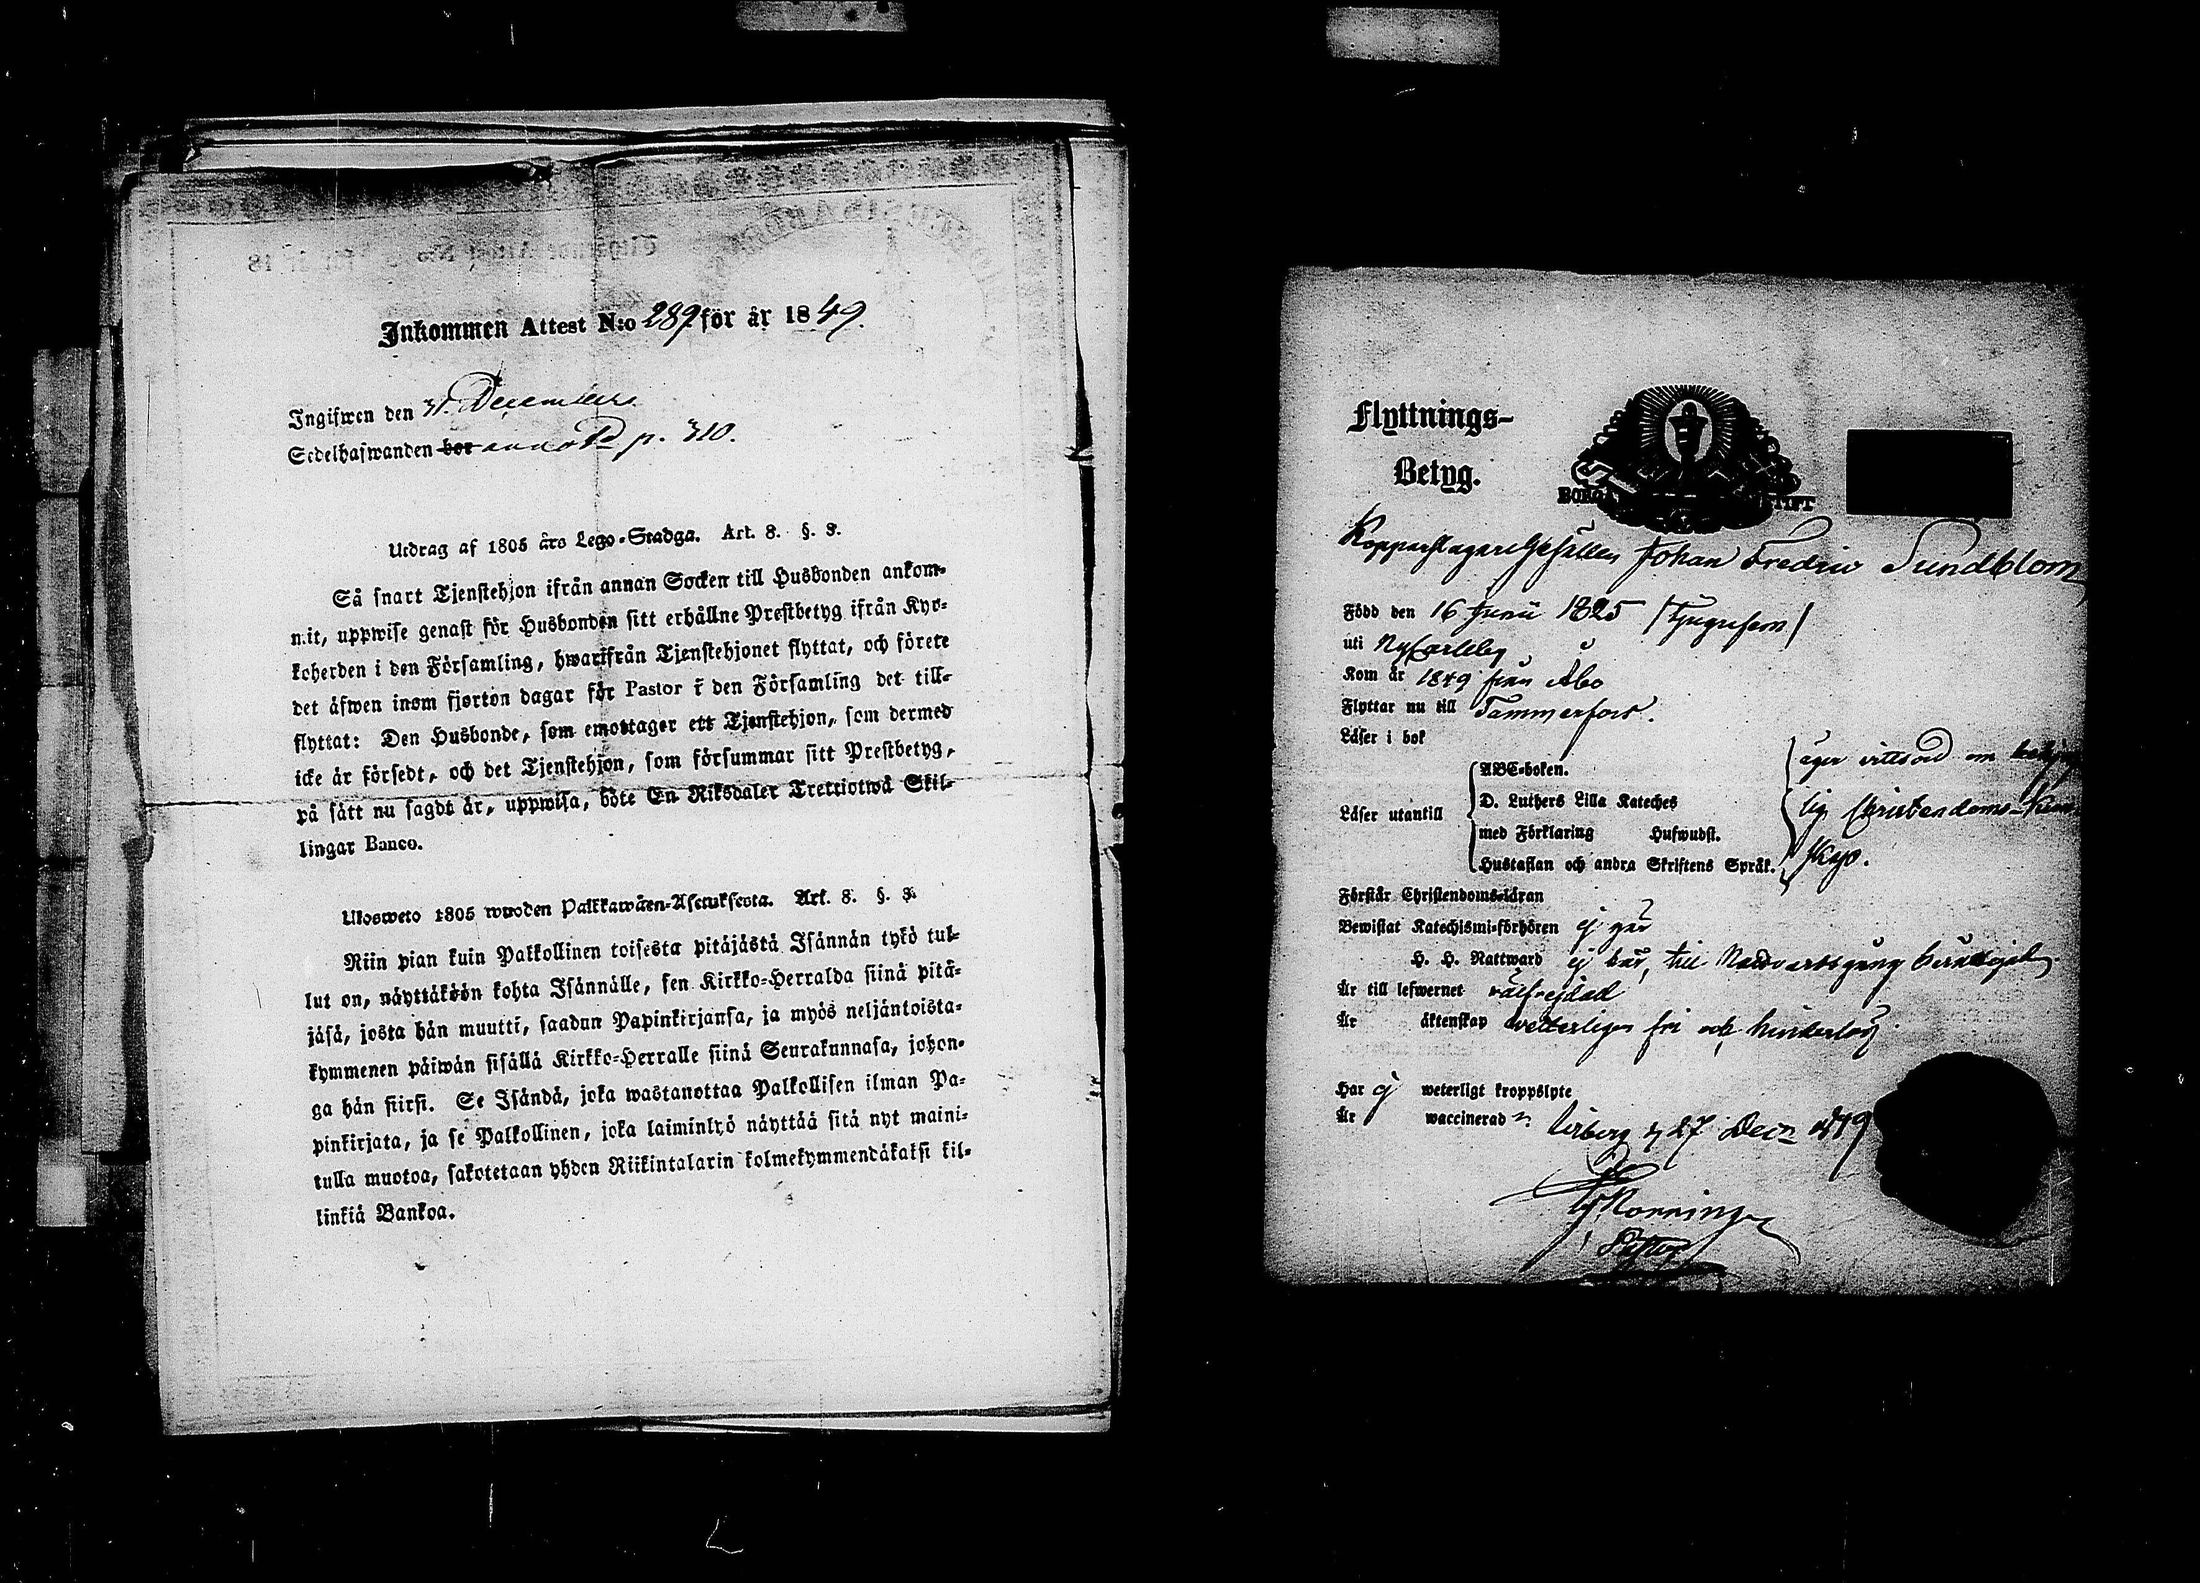 Inkommen Attest N:o 289 för år 1849.
Ingifwen den 31 December
Sedelhafwanden bor annot. p. 310.
Utdrag af 1805 års Lego-Stadga. Art. 8. §. 3.
Så snart Tjenstehjon ifrån annan Socken till Husbonden ankom-
mit, uppwise genast för Husbonden sitt erhållne Prestbetyg ifrån Kyr-
koherden i den Församling, hwarifrån Tjenstehjonet flyttat, och förete
det äfwen inom fjorton dagar för Pastor i den Församling det till-
flyttat: Den Husbonde, som emottager ett Tjenstehjon, som dermed
icke är försedt, och det Tjenstehjon, som försummar sitt Prestbetyg,
på sätt nu sagdt är, uppwisa, böte En Riksdaler Trettiotwå Skil-
lingar Banco.
Ulosweto 1805 wuoden Palkkawäen-Asetuksesta. Art. 8. §. 3.
Niin pian kuin Palkollinen toisesta pitäjästä Isännän tykö tul-
lut on, näyttäköön kohta Isännälle, sen Kirkko-Herralda siinä pitä-
jäsä, josta hän muutti, saadun Papinkirjansa, ja myös neljäntoista-
kymmenen päiwän sisällä Kirkko-Herralle siinä Seurakunnasa, johon-
ga hän siirsi. Se Isändä, joka wastanottaa Palkollisen ilman Pa-
pinkirjata, ja se Palkollinen, joka laiminlyö näyttää sitä nyt maini-
tulla muotoa, sakotetaan yhden Riikintalarin kolmekymmendäkaksi kil-
linkiä Bankoa.
Flyttnings-
Betyg.
BORGÅ STIFT
Kopparslagare Gesällen Johan Fredric Sundblom
Född den 16 Junii 1825 /Tjugufem/
uti NyCarleby
Kom år 1849 från Åbo
Flyttar nu till Tammerfors.
Läser i bok
ABC-boken.
Läser utantill D. Luthers Lilla Kateches
med Förklaring Hufwudst.
Hustaflan och andra Skriftens Språk.
äger vittsord om
lig Christendoms-
skap.
Förstår Christendomsläran
Bewistat Katechismi-förhören ej här
H. H. Nattward ej här, till Nattvardsgång berättigad
Är till lefwernet välfrejdad
Är äktenskap vetterligen fri och hinderlös
Har ej weterligt kroppslyte
Är waccinerad
27 Decr 1849
Pastor